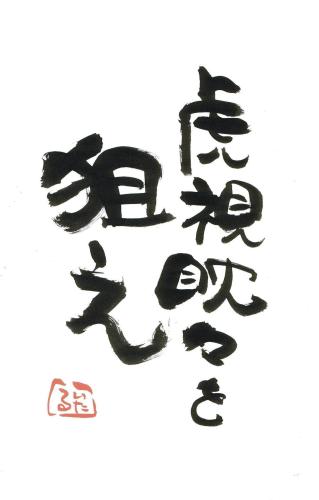 虎視眈々と
狙え